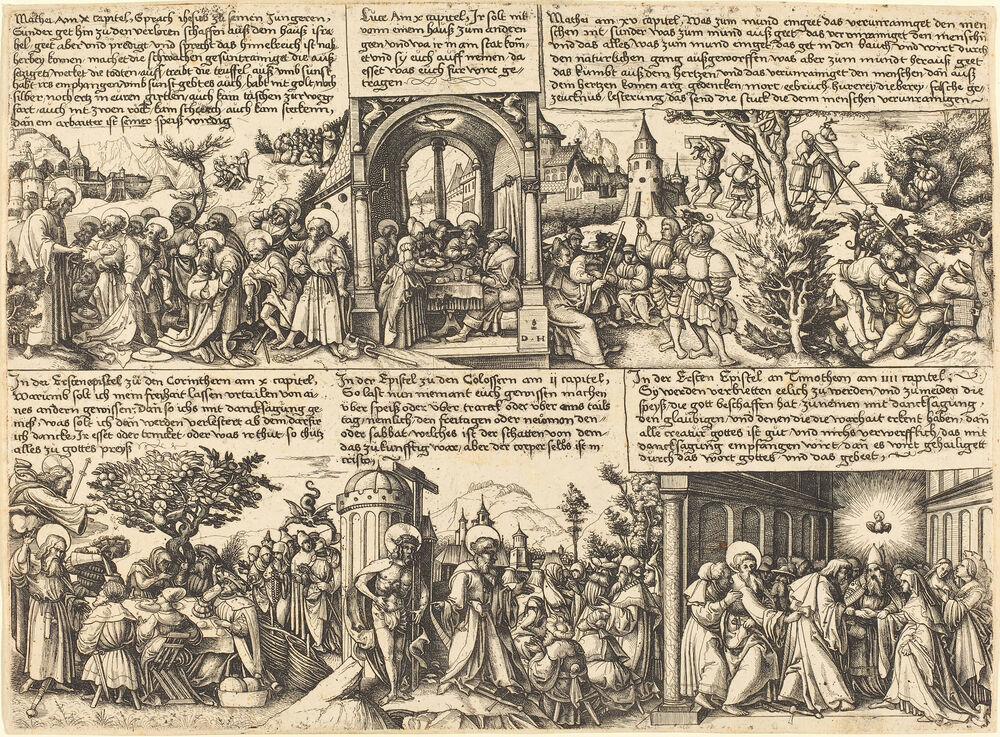 Mathei Am X capitel, Sprach ihesus zu seinen Jungeren,
Sunder get hin zu den verlornen schaffen auß dem hauß isra
hel, geet aber vnd predigt vnd sprecht das himelreich ist nah
herbey komen, machet die schwachen gesunt rainiget die auß
setzigen wecket die todten auff treibt die teuffel auß vmb sunst
habt irs empfangen vmb sunst gebt es auch habt nit golt noch
silber noch ertz in euren girtlen auch kain taschen zu weg
fart auch nit zwen rock kein schuech auch kain stecken,
dan ein arbaitter ist seiner speiß wirdig
Luce Am X capitel, Ir solt nit
vonn einem hauß zum andern
gen vnd wa ir in ain stat kom
end vnd sy euch auff nemen da
esset was euch für wirt ge
tragen
Mathei am XV capitel, Was zum mund eingeet das verunrainiget den men
schen nit sunder was zum mund auß geet das verunrainiget den menschen
vnd das alles was zum mund einget das get in den bauch vnd wirt durch
den natürlichen gang außgeworffen was aber zum mundt herauß geet
das kumbt auß dem hertzen vnd das verunrainiget den menschen dan auß
dem hertzen komen arg gedencken mort eebruch hurerey dieberey falsche ge
zeucknus lesterung das send die stuck die dem menschen verunrainigen
D H
In der Ersten epistel zu den Corinthern am X capitel,
Warumb solt ich mein freihait lassen urtailen von ai
nes andern gewissen, dan so ichs mit dancksagung ge
nieß was solt ich dan werden verlestert ab dem darfür
ich dancke, Ir esset oder trincket oder was ir thut so thutz
alles zu gottes preyß
In der Epistel zu den Colossern am ii capitel,
So last nun niemant euch gewissen machen
über speiß oder über tranck oder über ains tails
tag nemlich den feirtagen oder neumon den
oder sabbat welches ist der schatten von dem
das zukunftig war, aber der corper selbs ist in
cristo,
In der Ersten Epistel an Timotheon am iiii capitel,
Sy werden verbietten eelich zu werden und zu meiden die
speyß die gott beschaffen hat zu nemen mit dancksagung
den glaubigen vnd denen die die warhait erkent haben, dan
alle creatur gottes ist gut vnd nichts verwerfflich das mit
dancksagung empfangen wirt, dan es wirt gehailiget
durch das wort gottes vnd das gebeet,